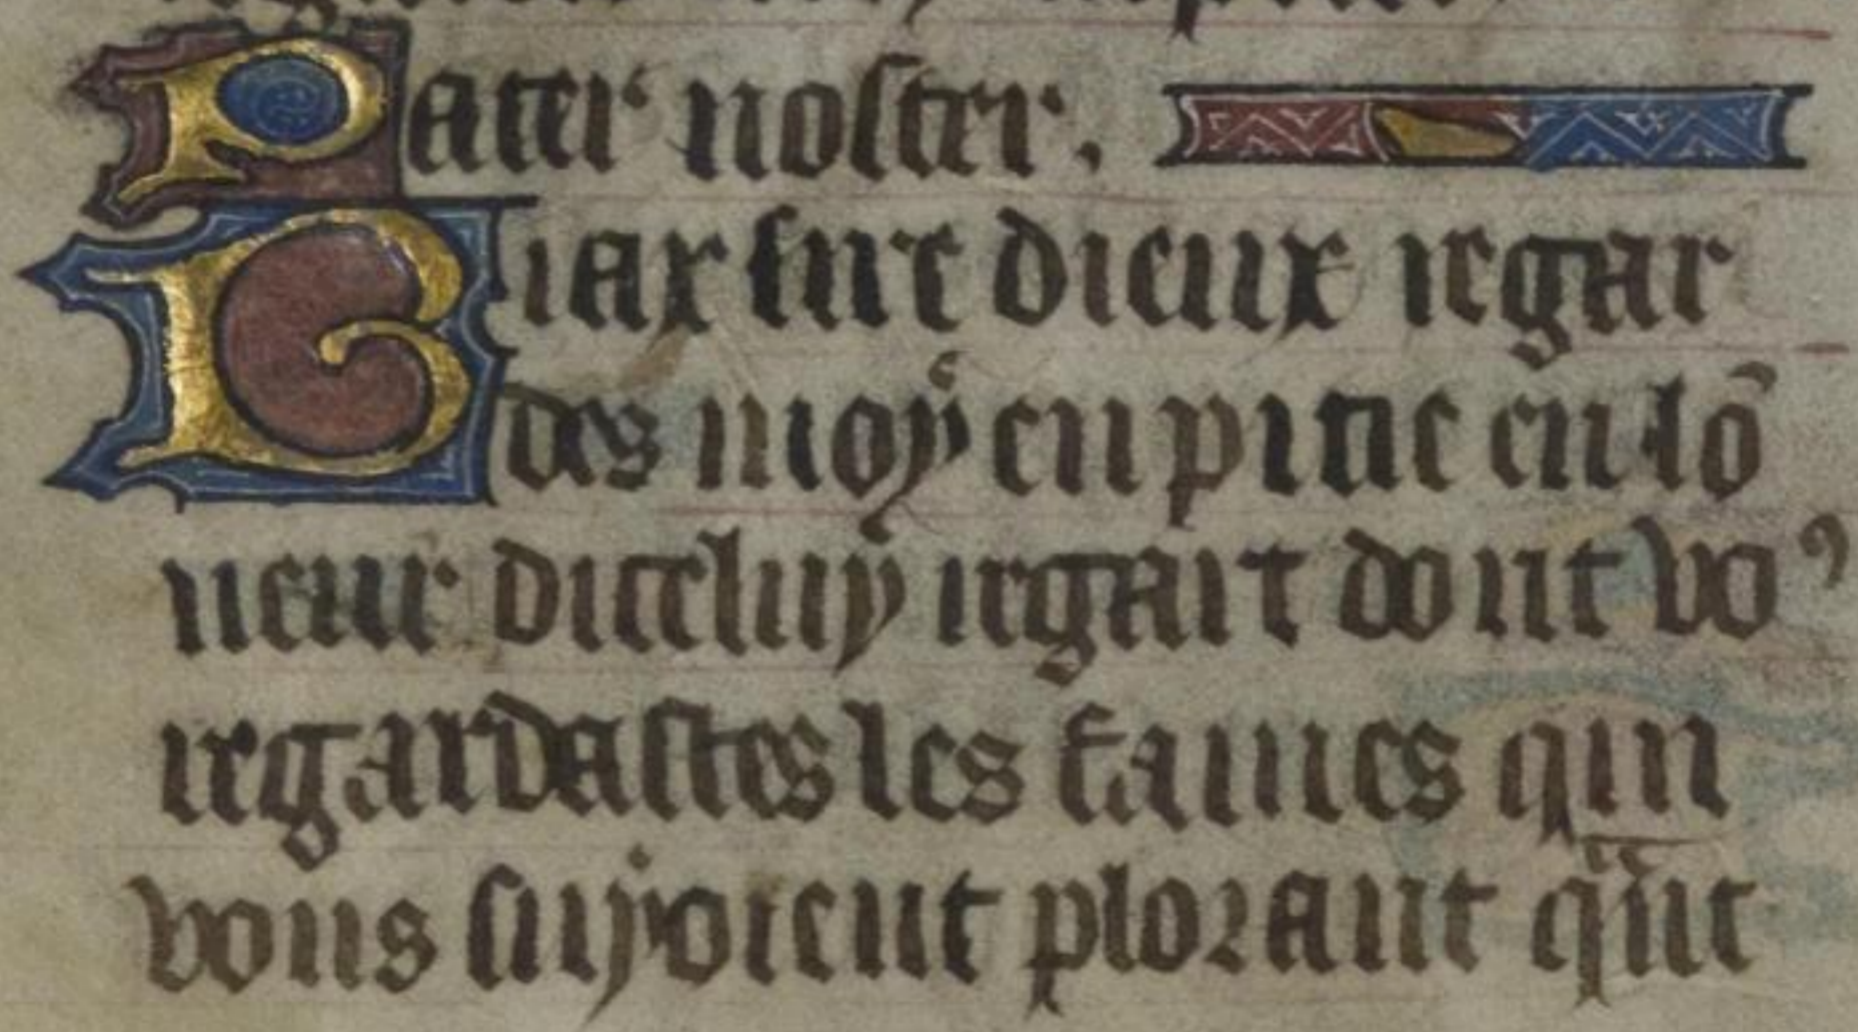 Pater noster.
Biax sire dieux regar
des moy en pitie en lõ
neur diceluy regart dont voꝰ
regardastes les fames qui
vous suyoient plorant qñt